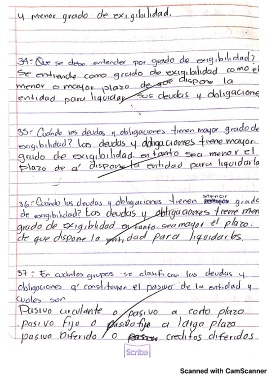 y menor grado de exigibilidad.
34- Que se debe entender por grado de exigibilidad?
Se entiende como grado de exigibilidad como el
menor o mayor plazo de que dispone la
entidad para liquidar sus deudas y obligaciones
35- Cuándo las deudas y obligaciones tienen mayor grado de
exigibilidad? Las deudas y obligaciones tienen mayor
grado de exigibilidad en tanto sea menor el
Plazo de q' dispone la entidad para liquidarla
36- Cuándo las deudas y obligaciones tienen menor grado
de exigibilidad? Las deudas y obligaciones tiene men
grado de exigibilidad en tanto sea mayor el plazo.
de que dispone la entidad para liquidarlos.
37- En cuántos grupos se clasifican las deudas y
obligaciones q' constituyen el pasivo de la entidad y
cuales son
Pasivo circulante o pasivo a corto plazo
pasivo fijo o pasivo fijo a largo plazo
pasivo Diferido o creditos diferidos
Scribe
Scanned with CamScanner